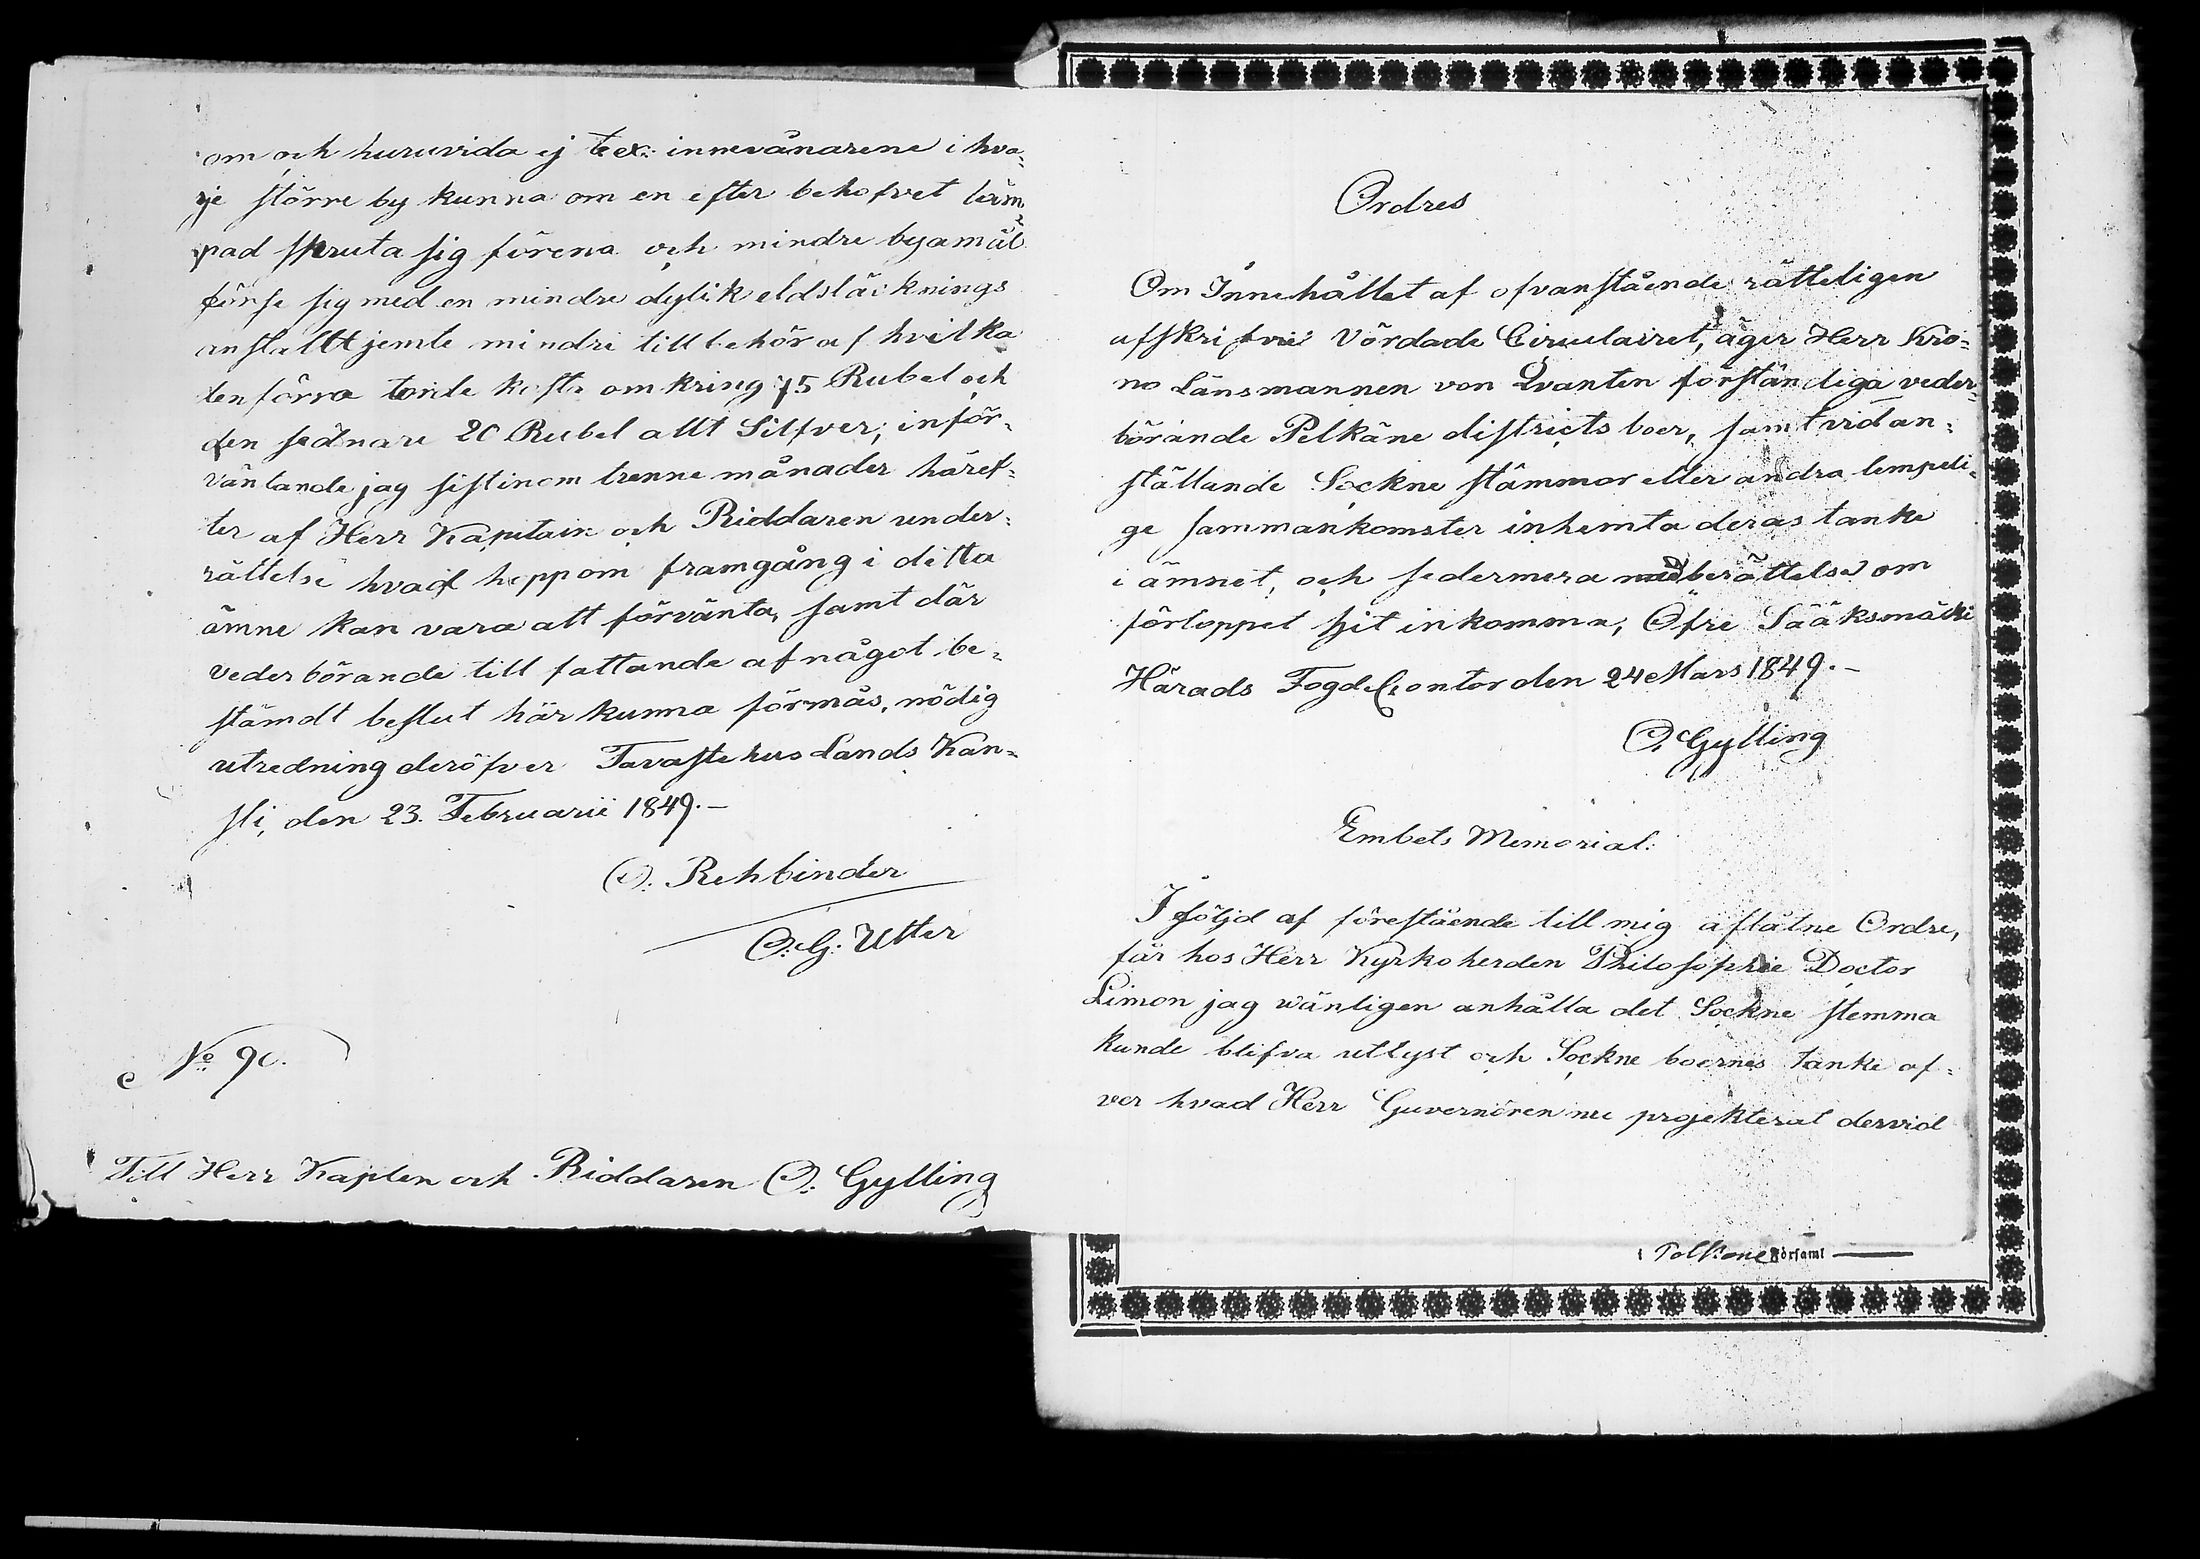 om och huruvida ej t.ex. innevånarene i hva=
rje större by kunna om en efter behofvet läm=
pad spruta sig förena och mindre byamål
förse sig med en mindre dylik eldsläcknings
anstallt jemte mindre tillbehör af hvilka
den förra torde kosta omkring 75 Rubel och
den sednare 20 Rubel allt Silfver; inför=
väntande jag sist inom trenne månader häref=
ter af Herr Kapitain och Riddaren under=
rättelse hvad hopp om framgång i detta
ämne kan vara att förvänta, samt där
vederbörande till fattande af något be=
stämdt beslut här kunna förmås, nödig
utredning deröfver Tavastehus Lands Kan=
sli, den 23. Februarii 1849.—
O. Rehbinder
C. G. Utter
No 90.
Till Herr Kapten och Riddaren C. Gylling
Ordres
Om Innehållet af ofvanstående rätteligen
afskrifne Vördade Circulairet, äger Herr Kro=
no Länsmannen von Qvanten förständiga veder=
börande Pelkäne districts boer, samt vid an=
ställande Sockne stämmor eller andra lempeli=
ge sammankomster inhemta deras tanke
i ämnet, och sedermera med berättelse om
förloppet hit inkomma, Öfre Sääksmäki
Härads Fogde Contor den 24 Mars 1849.—
C. Gylling
Embets Memorial.
I följd af förestående till mig aflåtne Ordre,
får hos Herr Kyrkoherden Philosophie Doctor
Limon jag wänligen anhålla det Sockne stemma
kunde blifva utlyst och Sockne boernes tanke öf=
ver hvad Herr Guvernören nu projekterat dervid
i Pälkäne Församl